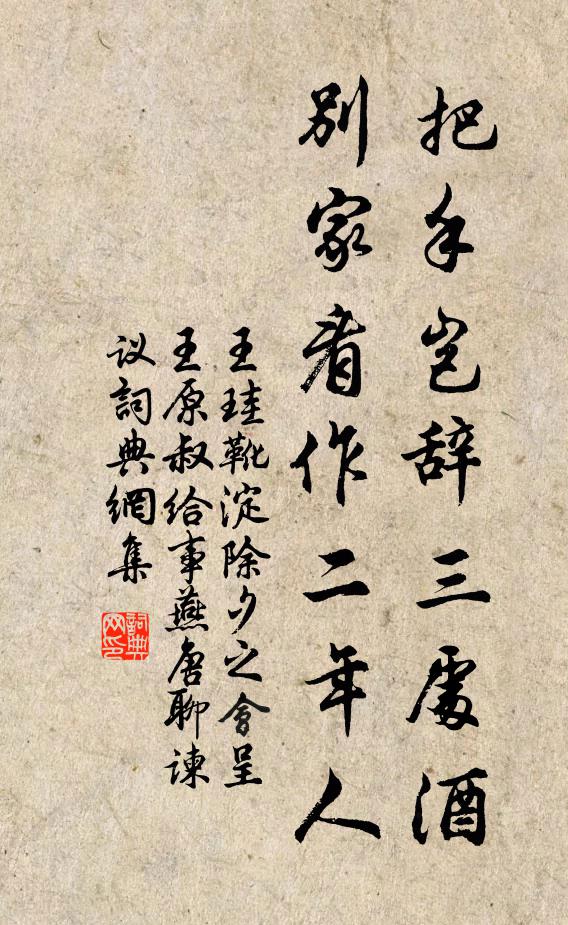 把手岂辞三處酒
別家看作二年人
王珪靴淀除夕之會呈
王原叔给事燕唐聊谏
议詞典網集
詞典
网印